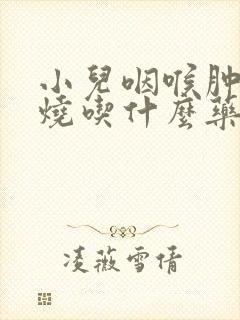 小兒咽喉肿
燒喫什麼藥
凌薇雪倩